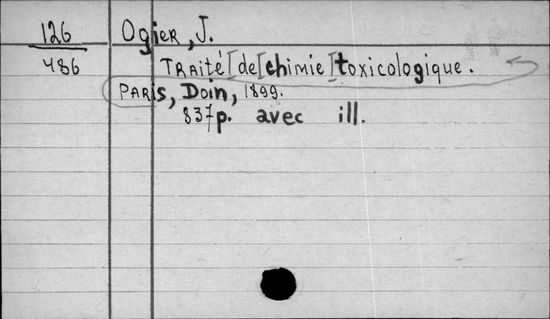 126
486
Ogier, J.
Traité [de [chimie] toxicologique.
Paris, Doin, 1899.
837p. avec ill.